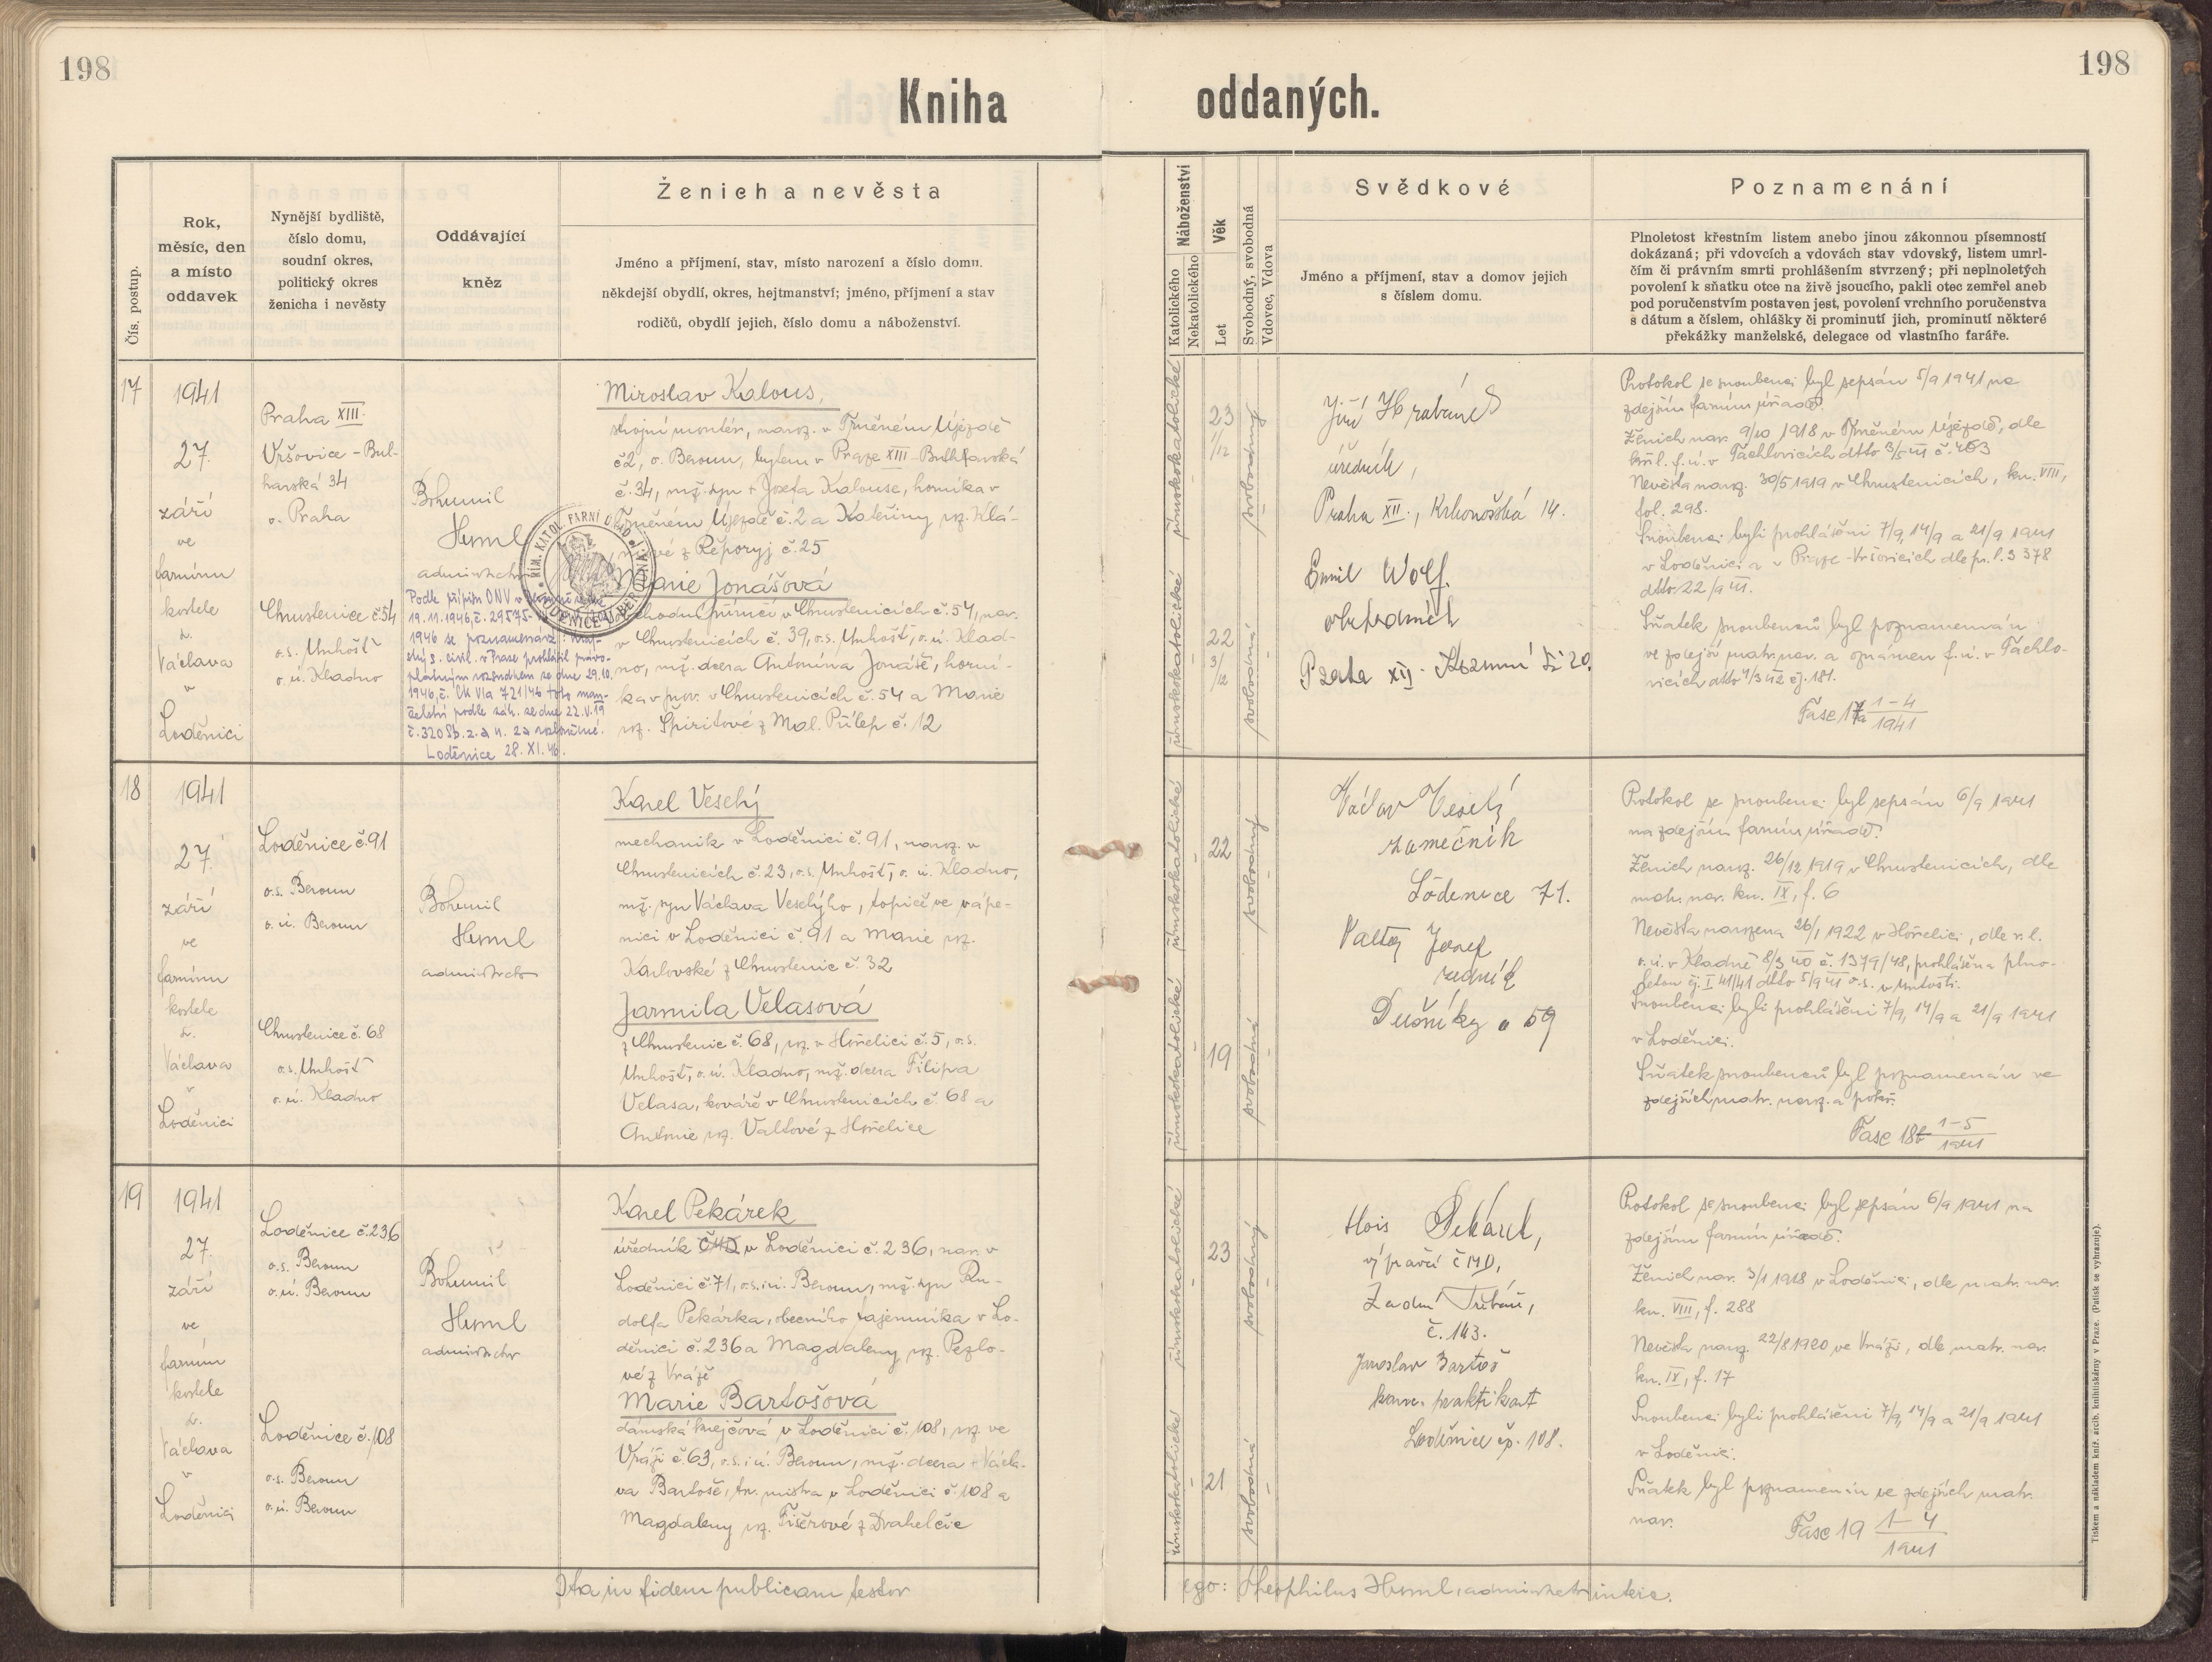 198
198
Kniha
oddaných.
Čís. postup.
Rok,
měsíc, den
a místo
oddavek
Nynější bydliště,
číslo domu,
soudní okres,
politický okres
ženicha i nevěsty
Oddávající
kněz
Ženich a nevěsta
Jméno a příjmení, stav, místo narození a číslo domu.
někdejší obydlí, okres, hejtmanství; jméno, příjmení a stav
rodičů, obydlí jejich, číslo domu a náboženství.
Náboženství
Katolického
Nekatolického
Věk
Let
Svobodný, svobodná
Vdovec, Vdova
Svědkové
Jméno a příjmení, stav a domov jejich
s číslem domu.
Poznamenání
Plnoletost křestním listem anebo jinou zákonnou písemností
dokázaná; při vdovcích a vdovách stav vdovský, listem umrl-
čím či právním smrti prohlášením stvrzený; při neplnoletých
povolení k sňatku otce na živě jsoucího, pakli otec zemřel aneb
pod poručenstvím postaven jest, povolení vrchního poručenstva
s dátum a číslem, ohlášky či prominutí jich, prominutí některé
překážky manželské, delegace od vlastního faráře.
17
1941
27.
září
ve
farním
kostele
sv.
Václava
v
Loděnici
Praha XIII.
Vršovice - Bul-
harská 34
o. Praha
Chrustenice č.54
o.s. Unhošť
o. ú. Kladno
Bohumil
Heml
administrátor
Podle přípisu ONV v Berouně ze dne
19.11.1946, č. 29575-
1946 se poznamenává: Kraj-
ský s. civil. v Praze prohlásil právo-
platným rozsudkem ze dne 29.10.
1946, č. Ck VIa 721/46 toto man-
želství podle zák. ze dne 22.V.19
č. 320 Sb. z. a n. za rozloučené.
Loděnice 28. XI. 46.
ŘÍM. KATOL. FARNÍ ÚŘAD
LODĚNICE U BEROUNA
Miroslav Kalous,
strojní montér, naroz. v Trněném Újezdě
č.2, o. Beroun, bytem v Praze XIII - Bulharská
č. 34, mž. syn + Josefa Kalouse, horníka v
Trněném Újezdě č. 2 a Kateřiny roz.
z Řeporyj č. 25
Marie Jonášová
v Chrustenicích č. 54, nar.
v Chrustenicích č. 39, o.s. Unhošť, o. ú. Klad-
no, mž. dcera Antonína Jonáše, horní-
ka v Chrustenicích č. 54 a Marie
roz. Špiritové z Mal. Přílep č. 12
římskokatolické
římskokatolické
23
11/12
22
3/12
svobodný
svobodná
Jiří Hrabánek
úředník,
Praha XII., Krkonošská 14.
Emil Wolf.
obchodník
Praha XII.
20.
Protokol se snoubenci byl sepsán 5/9 1941 na
zdejším farním úřadě.
Ženich nar. 9/10 1918 v Trněném Újezdě, dle
křtl. f. ú. v Tachlovicích dtto
Nevěsta naroz. 30/5 1919 v Chrustenicích, kn. VIII,
fol. 298.
Snoubenci byli prohlášeni 7/9, 14/9 a 21/9 1941
v Loděnici a v Praze-Vršovicích dle pr. l. 3378
dtto 22/9 41.
Sňatek snoubenců byl poznamenán
ve zdejší matr. nar. a oznámen f. ú. v Tachlo-
vicích
Fasc 17 1-4
1941
18
1941
27.
září
ve
farním
kostele
sv.
Václava
v
Loděnici
Loděnice č. 91
o.s. Beroun
o. ú. Beroun
Chrustenice č. 68
o.s. Unhošť
o. ú. Kladno
Bohumil
Heml
administrátor
Karel Veselý
mechanik v Loděnici č. 91, naroz. v
Chrustenicích č. 23, o.s. Unhošť, o. ú. Kladno,
mž. syn Václava Veselýho, topiče ve vápe-
nici v Loděnici č. 91 a Marie roz.
Karlovské z Chrustenic č. 32
Jarmila Velasová
z Chrustenic č. 68, roz. v Hořelici č. 5, o.s.
Unhošť, o. ú. Kladno, mž. dcera Filipa
Velasa, kováře v Chrustenicích č. 68 a
Antonie roz. Valtové z Hořelice
římskokatolické
římskokatolické
22
19
svobodný
svobodná
Václav Veselý
zámečník
Loděnice 71.
Valta Josef
řezník
Dušníky č 59
Protokol se snoubenci byl sepsán 6/9 1941
na zdejším farním úřadě.
Ženich naroz. 26/12 1919 v Chrustenicích, dle
matr. nar. kn. IX, f. 6
Nevěsta narozena 26/1 1922 v Hořelici, dle r. l.
o. ú. v Kladně 8/3 40 č. 1379/48, prohlášena plno-
letou čj. I 41/41 dtto 5/9 41 o.s. v Unhošti.
Snoubenci byli prohlášeni 7/9, 14/9 a 21/9 1941
v Loděnici.
Sňatek snoubenců byl poznamenán ve
zdejších matr. naroz. a
Fasc 18 1-5
1941
19
1941
27.
září
ve
farním
kostele
sv.
Václava
v
Loděnici
Loděnice č. 236
o.s. Beroun
o. ú. Beroun
Loděnice č. 108
o.s. Beroun
o. ú. Beroun
Bohumil
Heml
administrátor
Karel Pekárek
úředník ČMD v Loděnici č. 236, nar. v
Loděnici č. 71, o.s. i ú. Beroun, mž. syn Ru-
dolfa Pekárka, obecního tajemníka v Lo-
děnici č. 236 a Magdaleny roz. Pezlo-
vé z Vráže
Marie Bartošová
dámská krejčová v Loděnici č. 108, roz. ve
Vráži č. 63, o.s. i ú. Beroun, mž. dcera + Václa-
va Bartoše, mistra v Loděnici č. 108 a
Magdaleny roz. Fišerové z Drahelčic
římskokatolické
římskokatolické
23
21
svobodný
svobodná
Alois Pekárek,
výpravčí ČMD,
Zadní Třebáň,
č. 143.
Jaroslav Bartoš
praktikant
Loděnice čp. 108.
Protokol se snoubenci byl sepsán 6/9 1941 na
zdejším farním úřadě.
Ženich nar. 3/1 1918 v Loděnici, dle matr. nar.
kn. VIII, f. 288
Nevěsta naroz. 22/8 1920 ve Vráži, dle matr. nar.
kn. IX, f. 17
Snoubenci byli prohlášeni 7/9, 14/9 a 21/9 1941
v Loděnici.
Sňatek byl poznamenán ve zdejších matr.
nar.
Fasc 19 1-4
1941
Ita in fidem publicam testor
ego: Theophilus Heml, administrator interc.
Tiskem a nákladem kníž. arcib. knihtiskárny v Praze. (Patisk se vyhrazuje).